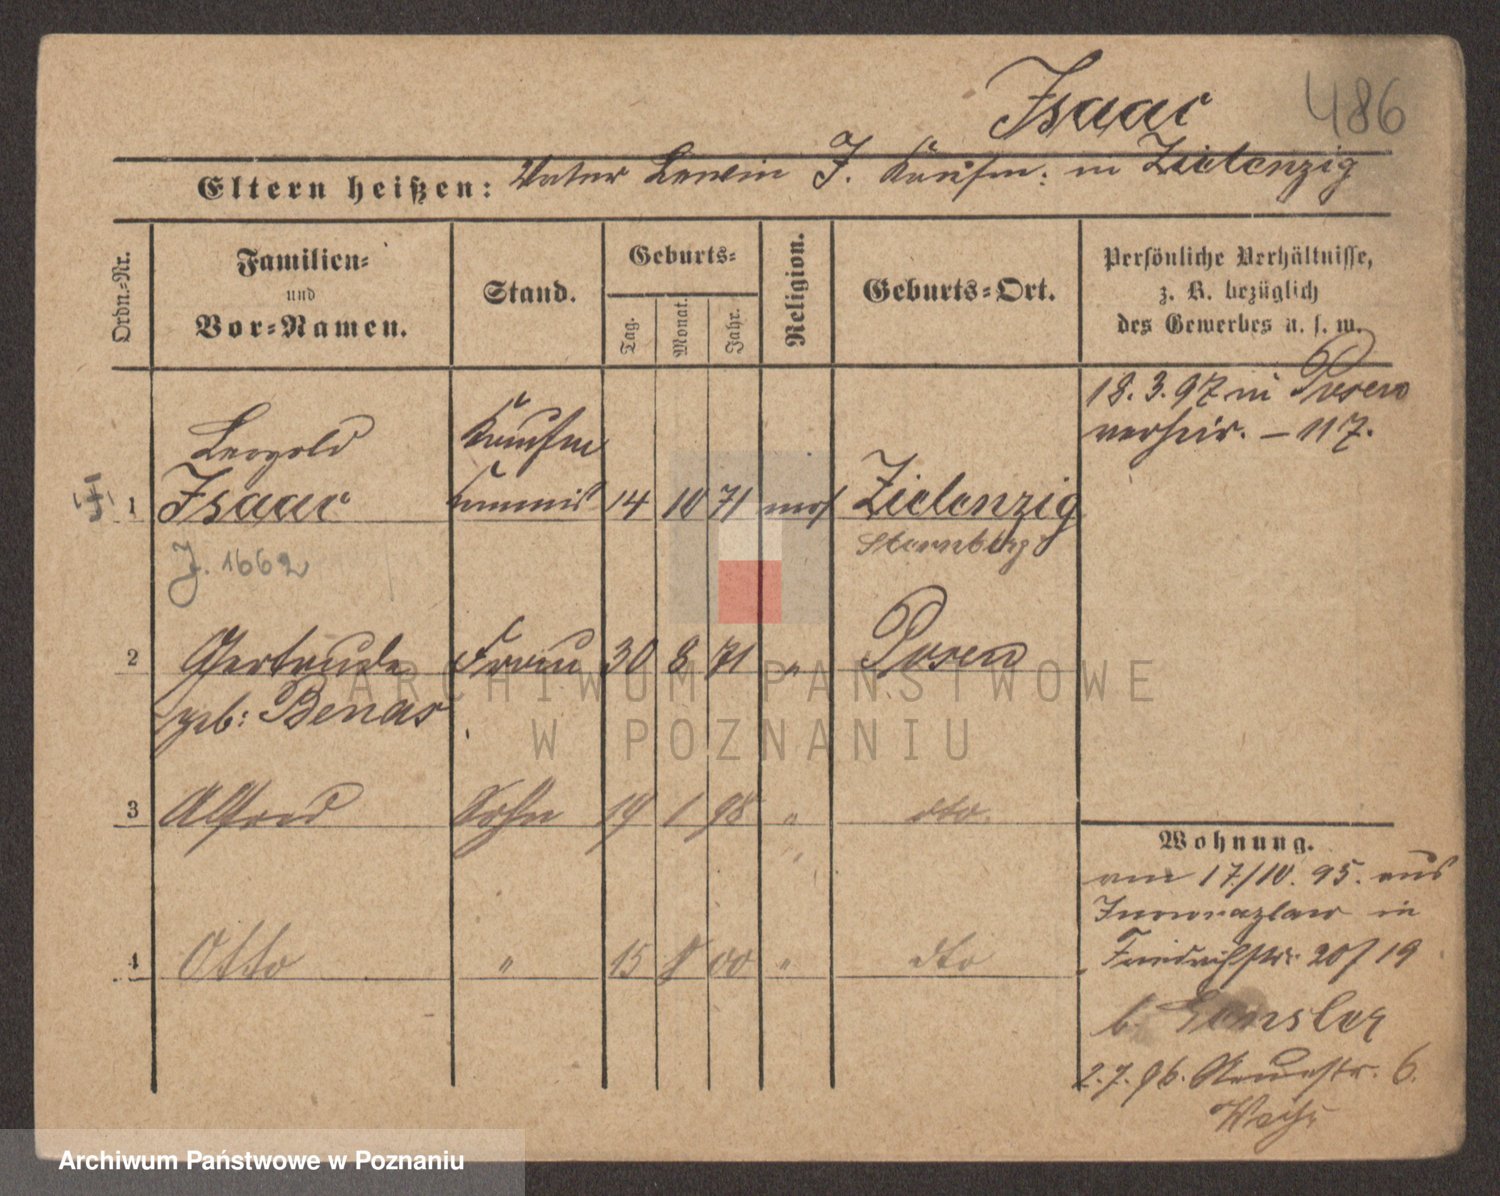 Isaac 486
Eltern heißen: Vater Lewin J. Kaufm: in Zielenzig
Ordn.-Nr.
Familien-
und
Vor-Namen.
Stand.
Geburts-
Tag.
Monat.
Jahr.
Religion.
Geburts-Ort.
Persönliche Verhältnisse,
z. B. bezüglich
des Gewerbes u. s. w.
18.3.97 in Posen
verheir. – 117.
Leopold Kaufm
1 Isaac Commis 14 10 71 mos Zielenzig
Sternberg
J. 1662
2 Gertrude Frau 30 8 71 " Posen
geb: Benas
3 Alfred Sohn 19 1 98 " dto.
4 Otto " 15 8 00 " dto
Wohnung.
am 17/10. 95. aus
Inowrazlaw in
Friedrichstr. 20/19
b.
2.7.96. 6.
ARCHIWUM PAŃSTWOWE
W POZNANIU
Archiwum Państwowe w Poznaniu